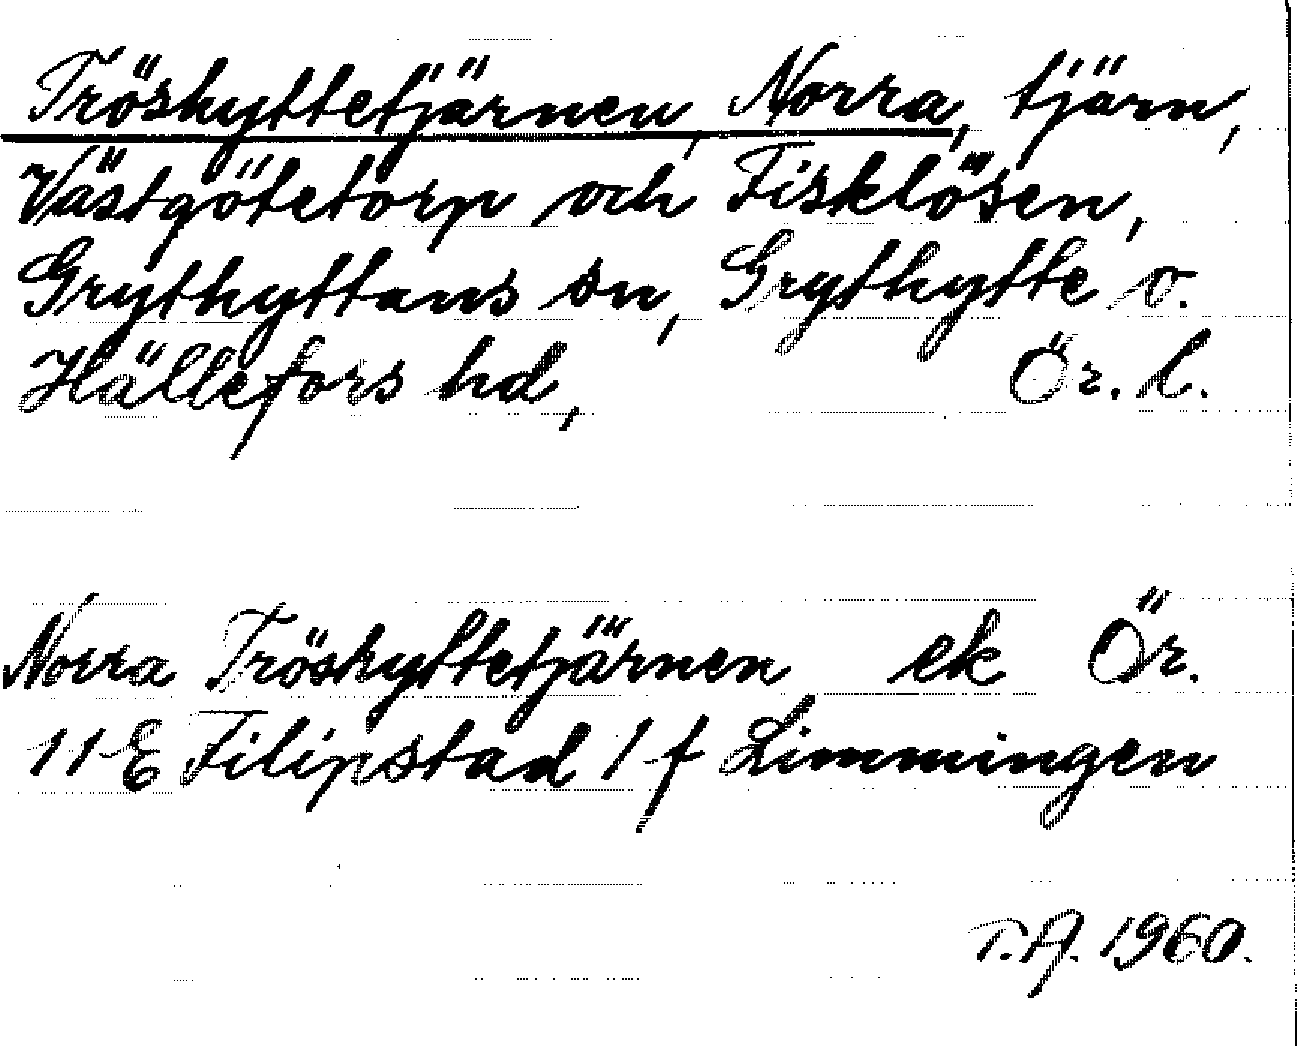 Tröshyttetjärnen, Norra, tjärn,
Västgötetorp och Fisklösen,
Grythyttans sn, Grythytte o.
Hällefors hd, Ör. l.
Norra Tröshyttetjärnen ek Ör.
11 E Filipstad 1 f Limmingen
T.A. 1960.